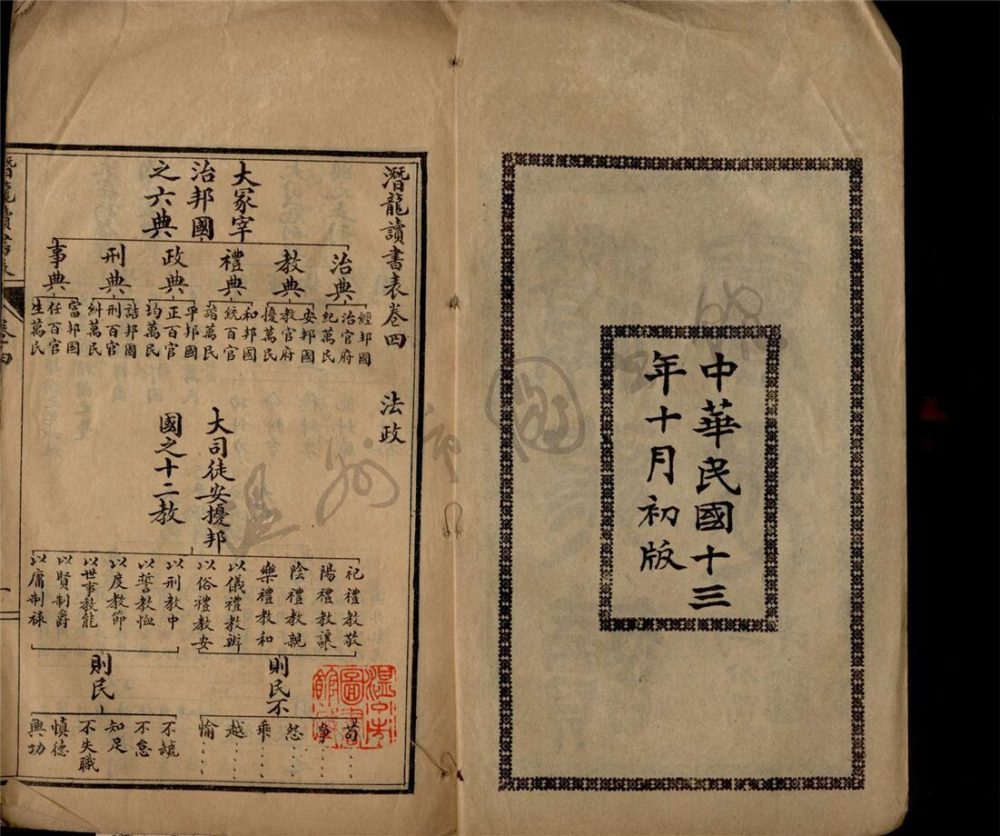 中華民國十三
年十月初版
潛龍讀書表卷四 法政
大冢宰
治邦國
之六典
治典
經邦國
治官府
紀萬民
教典
安邦國
教官府
擾萬民
禮典
和邦國
統百官
諧萬民
政典
平邦國
正百官
均萬民
刑典
詰邦國
刑百官
糾萬民
事典
富邦國
任百官
生萬民
大司徒安擾邦
國之十二教
祀禮教敬
陽禮教讓
陰禮教親
樂禮教和
以儀禮教辨
以俗禮教安
以刑教中
以誓教恤
以度教節
以世事教能
以賢制爵
以庸制祿
則民不
苟
爭
怨
乖
越
愉
則民
不虣
不怠
知足
不失職
慎德
興功
潛龍讀書表
卷四
一